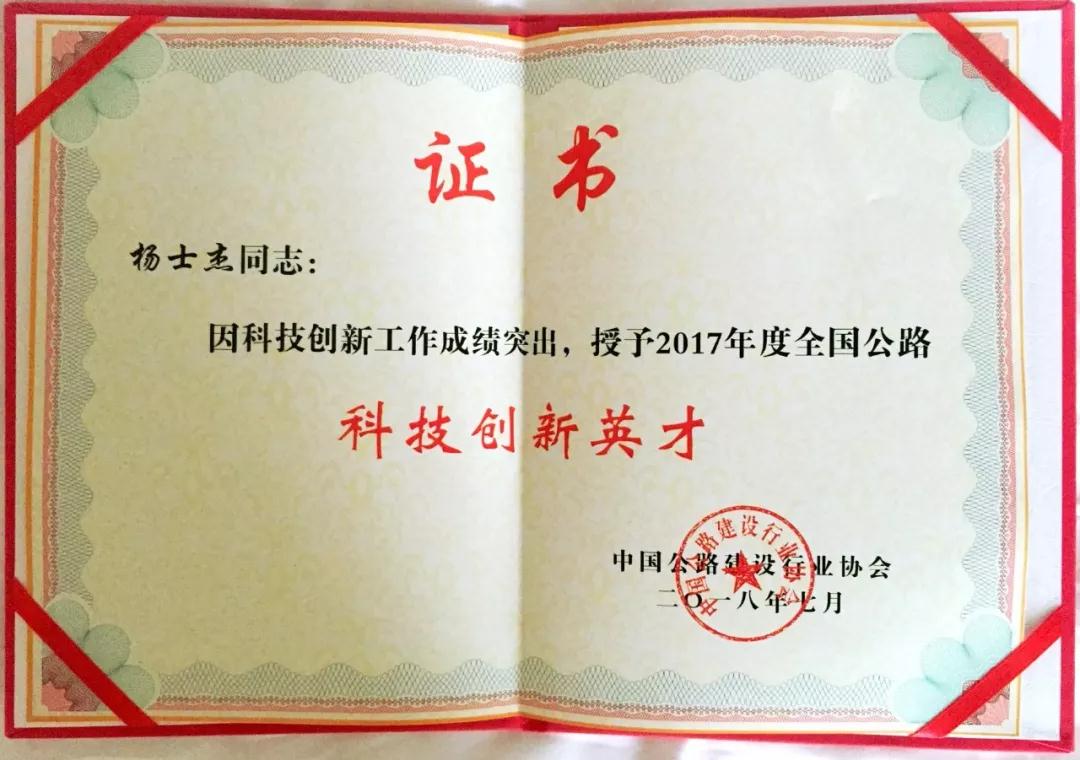 证书
杨士杰同志：
因科技创新工作成绩突出，授予2017年度全国公路
科技创新英才
中国公路建设行业协会
中国公路建设行业协会
二〇一八年七月